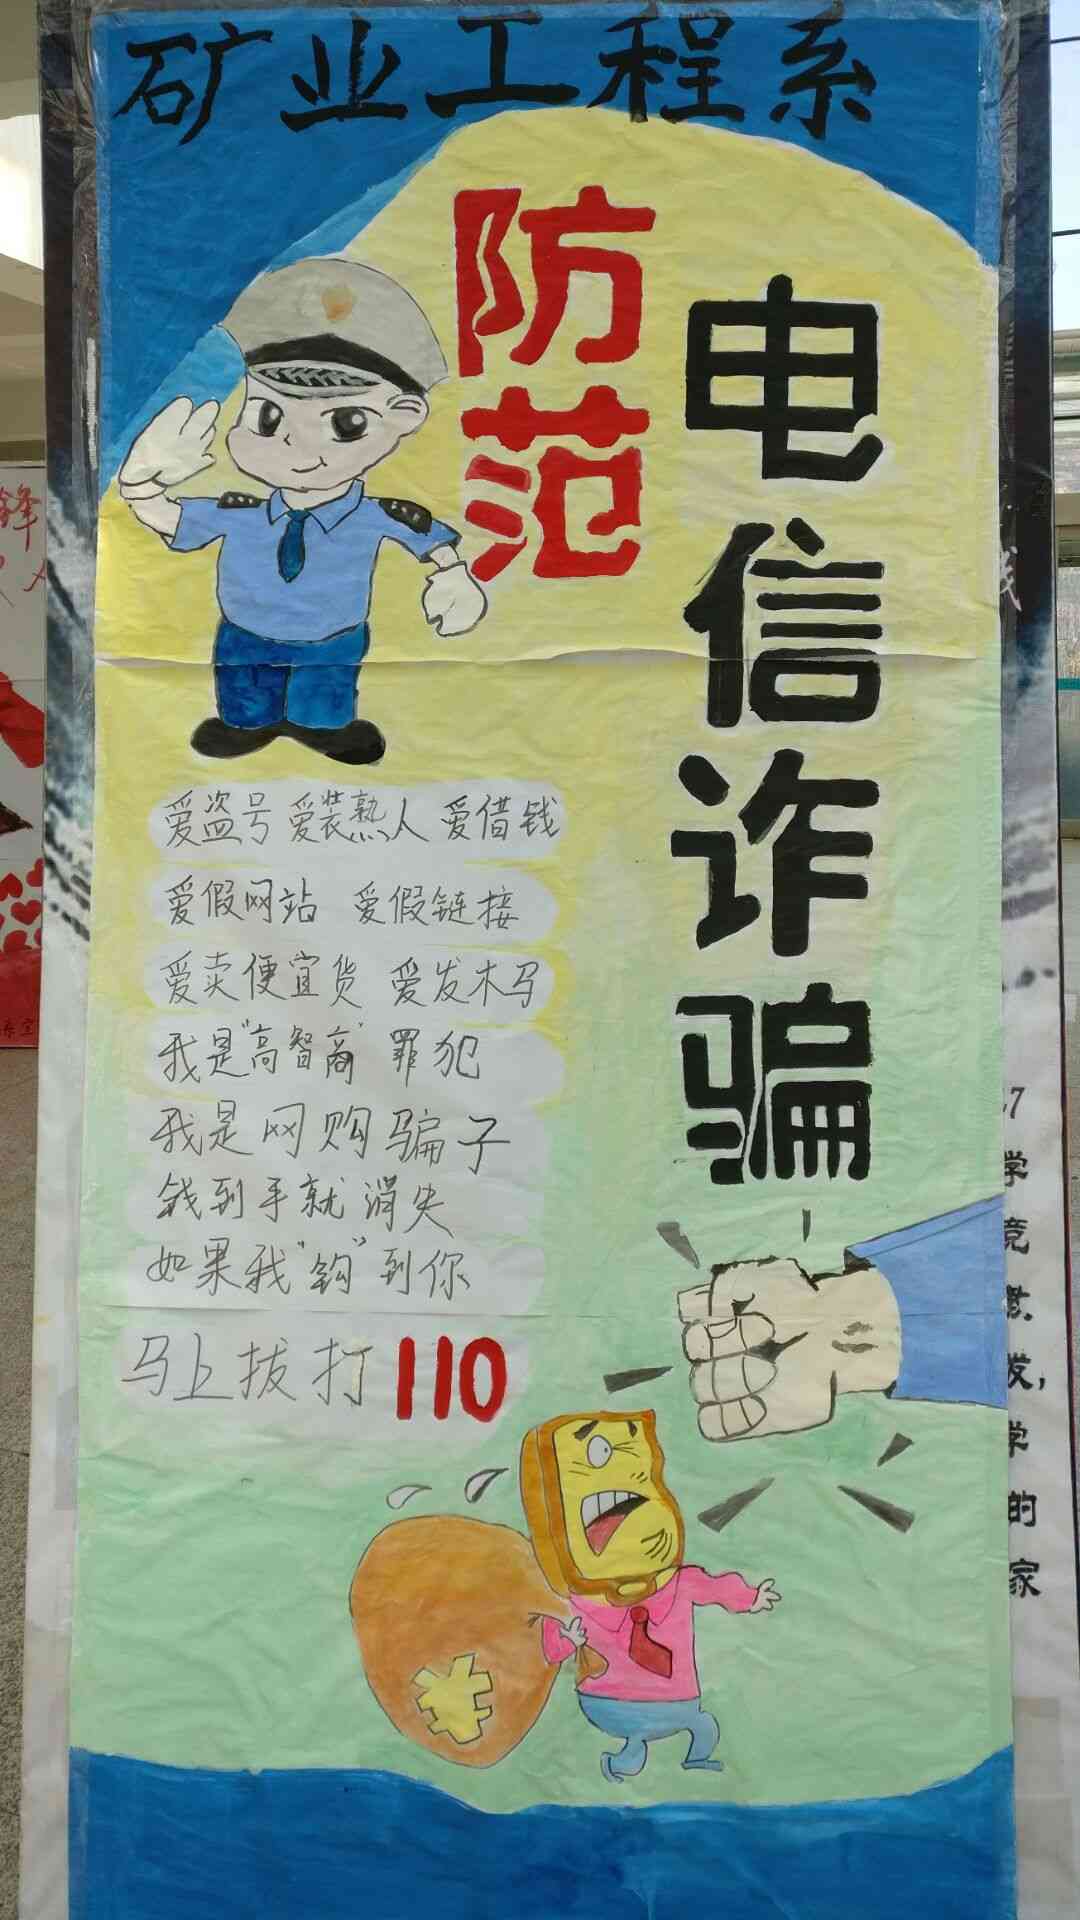 矿业工程系
防范
电信诈骗
爱盗号 爱装熟人 爱借钱
爱假网站 爱假链接
爱卖便宜货 爱发木马
我是"高智商"罪犯
我是网购骗子
钱到手就消失
如果我"钩"到你
马上拔打110
学
竞
发,
学
的
家